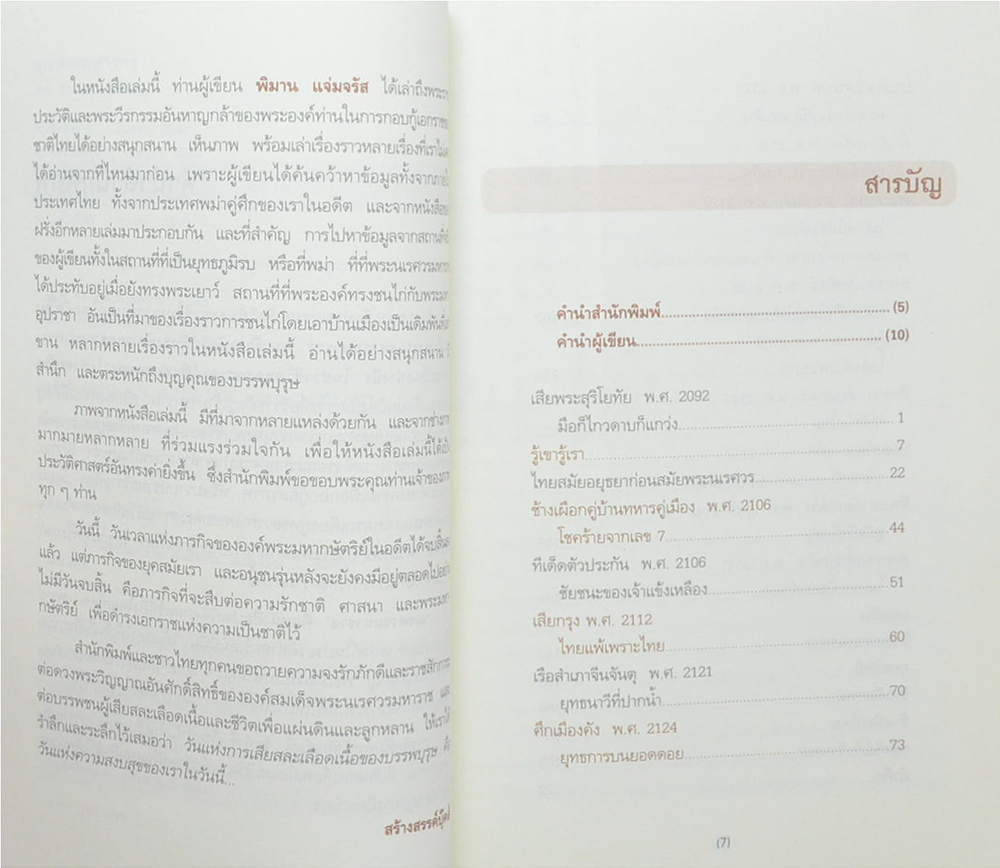 ในหนังสือเล่มนี้ ท่านผู้เขียน พิมาน แจ่มจรัส ได้เล่าถึงพระรา
ประวัติและพระวีรกรรมอันหาญกล้าของพระองค์ท่านในการกอบกู้เอกราชข
ชาติไทยได้อย่างสนุกสนาน เห็นภาพ พร้อมเล่าเรื่องราวหลายเรื่องที่เราไม่เ
ได้อ่านจากที่ไหนมาก่อน เพราะผู้เขียนได้ค้นคว้าหาข้อมูลทั้งจากภายใ
ประเทศไทย ทั้งจากประเทศพม่าคู่ศึกของเราในอดีต และจากหนังสือขอ
ฝรั่งอีกหลายเล่มมาประกอบกัน และที่สำคัญ การไปหาข้อมูลจากสถานที่จริ
ของผู้เขียนทั้งในสถานที่ที่เป็นยุทธภูมิรบ หรือที่พม่า ที่ที่พระนเรศวรมหา
ได้ประทับอยู่เมื่อยังทรงพระเยาว์ สถานที่ที่พระองค์ทรงชนไก่กับพระมห
อุปราชา อันเป็นที่มาของเรื่องราวการชนไก่โดยเอาบ้านเมืองเป็นเดิมพันที่เล
ขาน หลากหลายเรื่องราวในหนังสือเล่มนี้ อ่านได้อย่างสนุกสนาน
สำนึก และตระหนักถึงบุญคุณของบรรพบุรุษ
ภาพจากหนังสือเล่มนี้ มีที่มาจากหลายแหล่งด้วยกัน และจากช่างภา
มากมายหลากหลาย ที่ร่วมแรงร่วมใจกัน เพื่อให้หนังสือเล่มนี้ได้เป็
ประวัติศาสตร์อันทรงค่ายิ่งขึ้น ซึ่งสำนักพิมพ์ขอขอบพระคุณท่านเจ้าของภา
ทุก ๆ ท่าน
วันนี้ วันเวลาแห่งภารกิจขององค์พระมหากษัตริย์ในอดีตได้จบสิ้นล
แล้ว แต่ภารกิจของยุคสมัยเรา และอนุชนรุ่นหลังจะยังคงมีอยู่ตลอดไปอย่า
ไม่มีวันจบสิ้น คือภารกิจที่จะสืบต่อความรักชาติ ศาสนา และพระมหา
กษัตริย์ เพื่อดำรงเอกราชแห่งความเป็นชาติไว้
สำนักพิมพ์และชาวไทยทุกคนขอถวายความจงรักภักดีและราชสักการ
ต่อดวงพระวิญญาณอันศักดิ์สิทธิ์ขององค์สมเด็จพระนเรศวรมหาราช และ
ต่อบรรพชนผู้เสียสละเลือดเนื้อและชีวิตเพื่อแผ่นดินและลูกหลาน ให้เราได้
รำลึกและระลึกไว้เสมอว่า วันแห่งการเสียสละเลือดเนื้อของบรรพบุรุษ คื
วันแห่งความสงบสุขของเราในวันนี้...
สร้างสรรค์บุ๊คส์
สารบัญ
คำนำสำนักพิมพ์ (5)
คำนำผู้เขียน (10)
เสียพระสุริโยทัย พ.ศ. 2092
มือก็ไกวดาบก็แกว่ง 1
รู้เขารู้เรา 7
ไทยสมัยอยุธยาก่อนสมัยพระนเรศวร 22
ช้างเผือกคู่บ้านทหารคู่เมือง พ.ศ. 2106
โชคร้ายจากเลข 7 44
ทีเด็ดตัวประกัน พ.ศ. 2106
ชัยชนะของเจ้าแข้งเหลือง 51
เสียกรุง พ.ศ. 2112
ไทยแพ้เพราะไทย 60
เรือสำเภาจีนจันตุ พ.ศ. 2121
ยุทธนาวีที่ปากน้ำ 70
ศึกเมืองคัง พ.ศ. 2124
ยุทธการบนยอดดอย 73
(7)